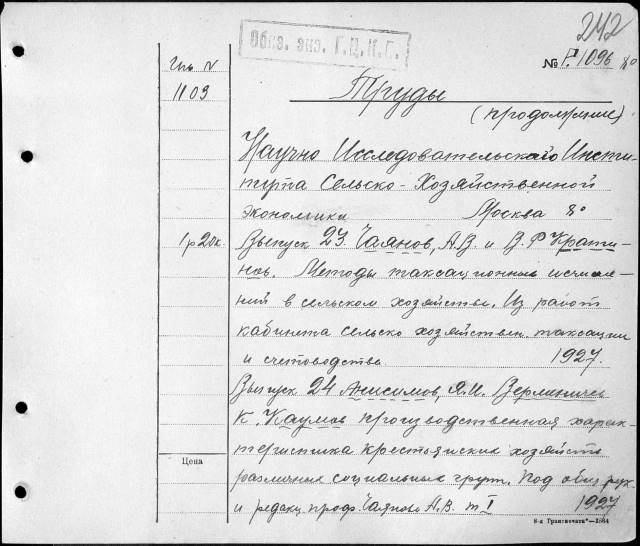 242
Обяз. экз. Г.Ц.К.П.
№ Р. 1096 8°
Инв N
1103
Труды
(продолжение)
Научно Исследовательского Инсти-
тута Сельско-Хозяйственной
Экономики Москва 8°
1р 20к. Выпуск 23. Чаянов, А.В. и В. Р Крати-
нов. Методы таксационных исчисле-
ний в сельском хозяйстве. Из работ
кабинета сельско хозяйствен. таксации
и счетоводства. 1927.
Выпуск 24 Анисимов, Я.И. Верминичев
К. Наумов производственная харак-
теристика крестьянских хозяйств
различных социальных групп. Под общ рук.
и редакц. проф. Чаянова А.В. т I 1927
Цена
8-я Транспечати"—3864